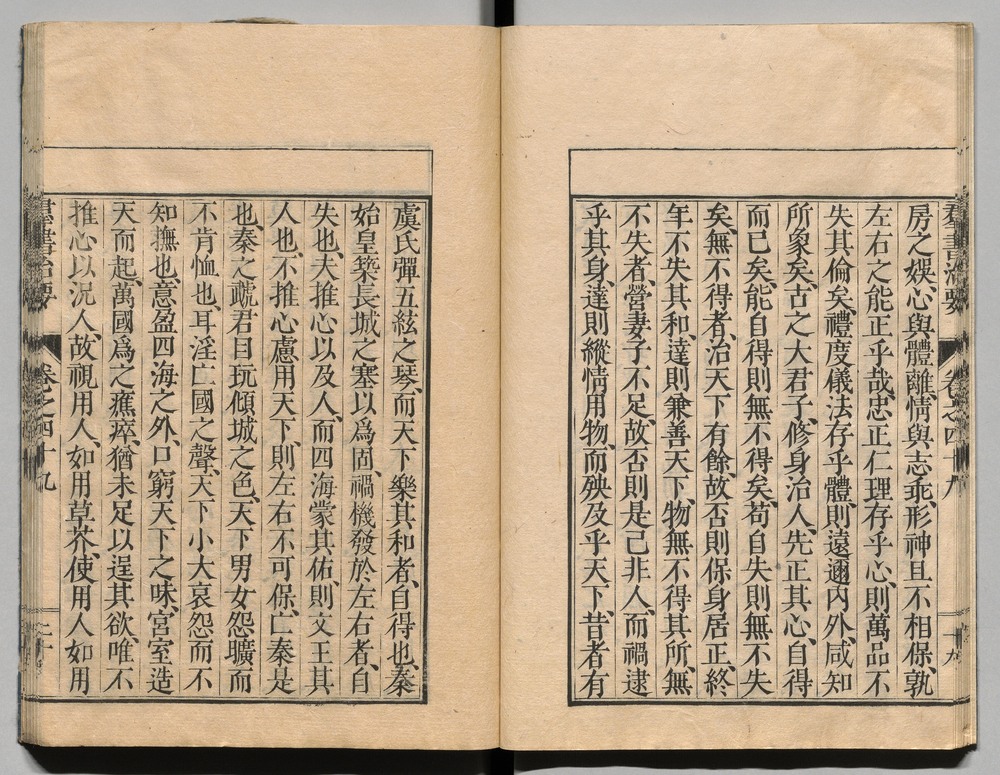 羣書治要　卷之四十九　十九
房之娛、心與體離、情與志乖、形神且不相保、孰
左右之能正乎哉、忠正仁理存乎心、則萬品不
失其倫矣、禮度儀法存乎體、則遠邇內外咸知
所象矣、古之大君子、修身治人、先正其心、自得
而已矣、能自得則無不得矣、苟自失則無不失
矣、無不得者、治天下有餘、故否則保身居正、終
年不失其和、達則兼善天下、物無不得其所、無
不失者、營妻子不足、故否則是己非人、而禍逮
乎其身、達則縱情用物、而殃及乎天下、昔者有
虞氏彈五絃之琴、而天下樂其和者、自得也、秦
始皇築長城之塞以爲固、禍機發於左右者、自
失也、夫推心以及人、而四海蒙其佑、則文王其
人也、不推心慮用天下、則左右不可保、亡秦是
也、秦之虣君目玩傾城之色、天下男女怨曠而
不肯恤也、耳淫亡國之聲、天下小大哀怨而不
知撫也、意盈四海之外、口窮天下之味、宮室造
天而起、萬國爲之癄瘁、猶未足以逞其欲、唯不
推心以況人、故視用人、如用草芥、使用人如用
羣書治要　卷之四十九　二十